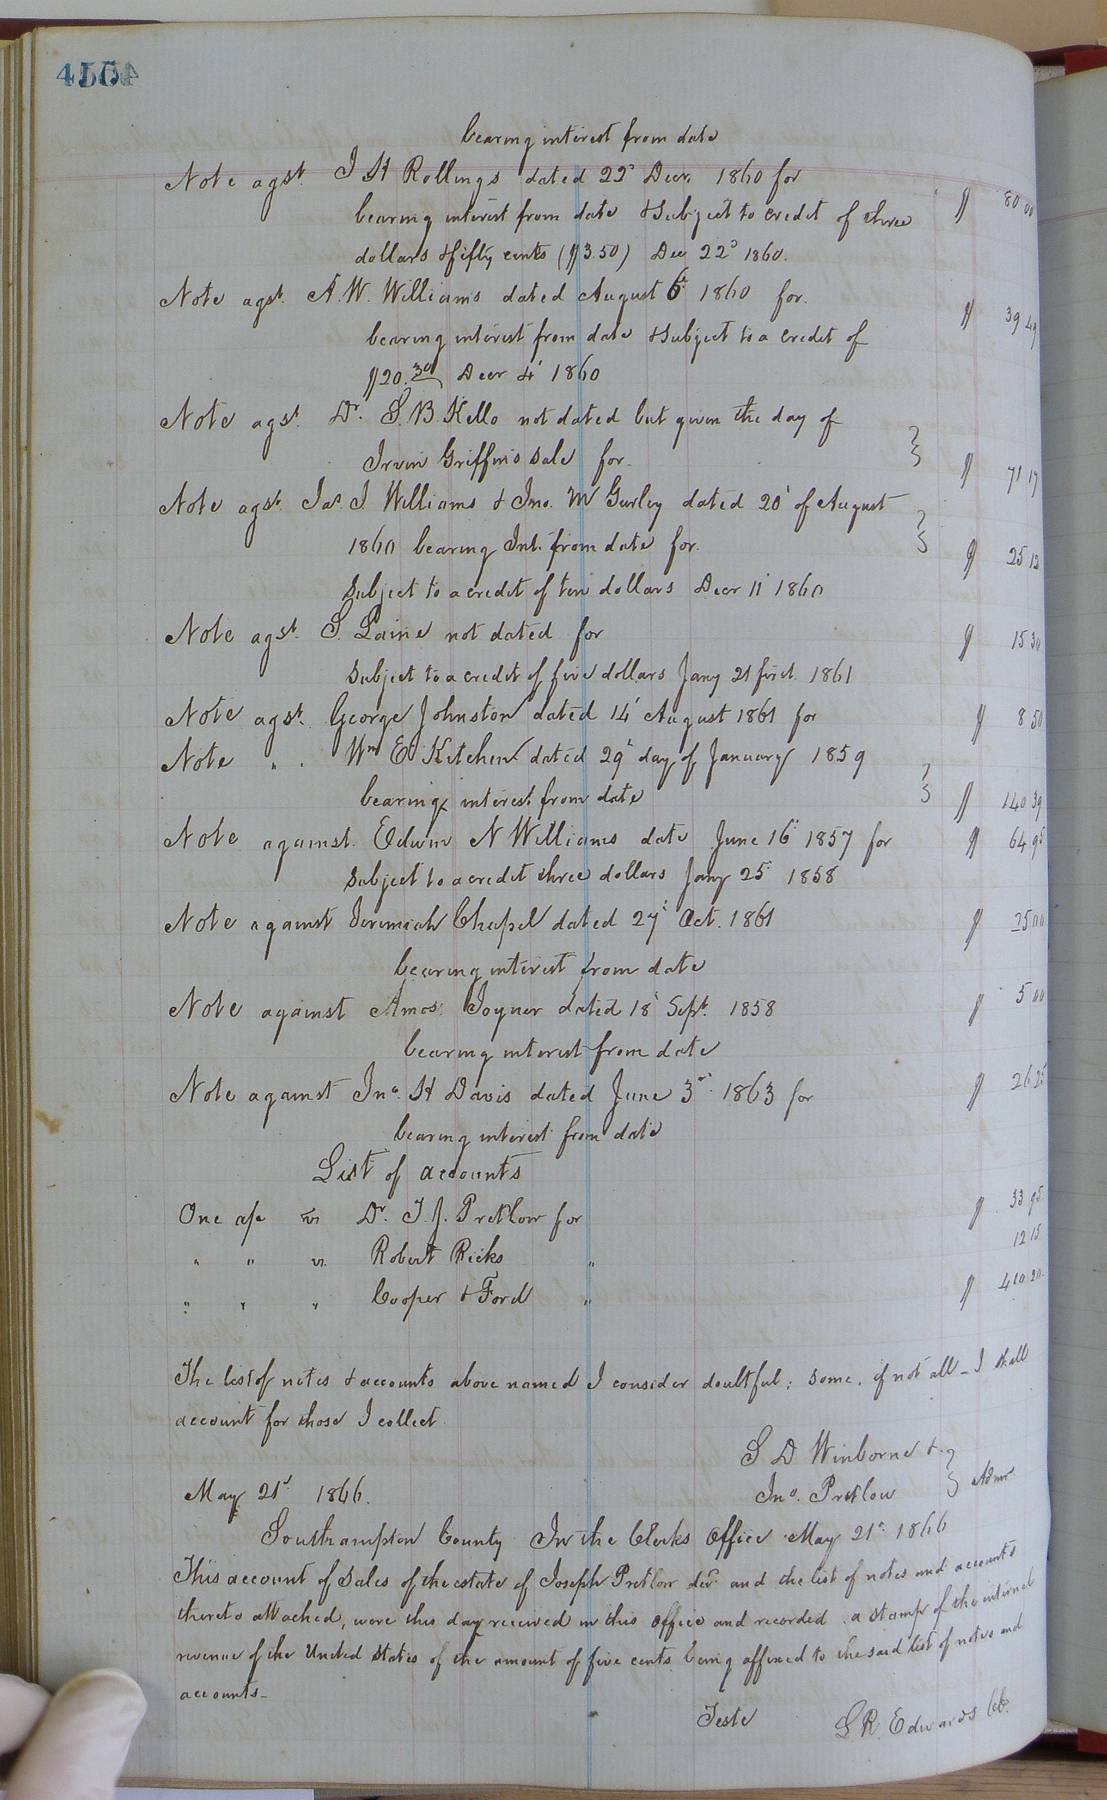 bearing interest from date
Note agst. J H Rollings dated 22d Decr. 1860 for $ 80 00
bearing interest from date & Subject to credit of three
dollars & fifty cents ($3.50) Dec 22d 1860.
Note agst. A. W. Williams dated August 6th 1860 for. $ 39 49
bearing interest from date & Subject to a credit of
$20.30 Decr 4' 1860
Note agst. Dr. S. B. Kello not dated but given the day of
Irvin Griffin's sale for. $ 71 17
Note agst. Jas. J. Williams & Jno. M Gurley dated 20' of August
1860 bearing Int. from date for. $ 25 12
Subject to a credit of ten dollars Decr 11' 1860
Note agst. S. Laine not dated for $ 15 30
Subject to a credit of five dollars Jany 21 first. 1861
Note agst. George Johnston dated 14' August 1861 for $ 8 50
Note " . Wm E. Kitchen dated 29' day of January 1859
bearing interest from date $ 140 39
Note against. Edwin N Williams date June 16' 1857 for $ 64 95
Subject to a credit three dollars Jany 25' 1858
Note against Jeremiah Chapel dated 27' Oct. 1861 $ 25 00
bearing interest from date
Note against Amos Joyner dated 18' Sept. 1858 $ 5 00
bearing interest from date
Note against Jno. H Davis dated June 3rd 1863 for $ 26 25
bearing interest from date
List of accounts
One a/c vs Dr. T. J. Pretlow for $ 33 95
" " vs. Robert Ricks " 12 15
" " " Cooper & Ford " $ 410 20
The list of notes & accounts above named I consider doubtful; some, if not all - I shall
account for those I collect
S D Winborne &
Jno. Pretlow } Admr
May 21st 1866.
Southampton County In the Clerks Office May 21st 1866
This account of Sales of the estate of Joseph Pretlow decd. and the list of notes and accounts
thereto attached, were this day received in this Office and recorded. a stamp of the internal
revenue of the United States of the amount of five cents being affixed to the said list of notes and
accounts-
Teste
L R. Edwards Clk.